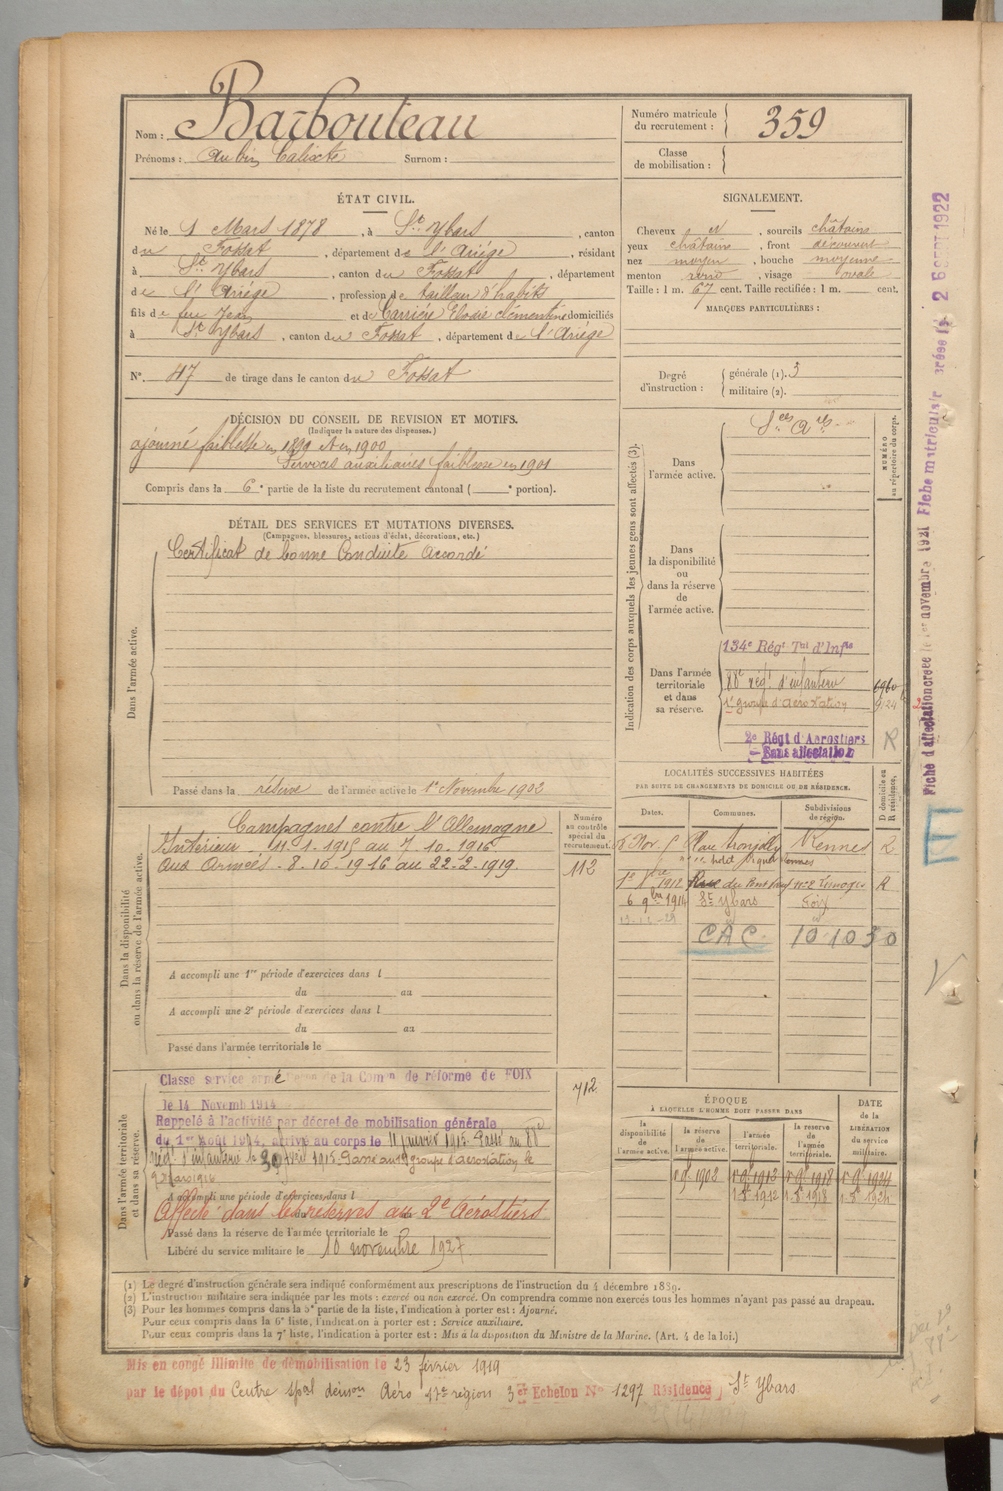 Nom : Barbouteau
Prénoms : Aubin Calixte Surnom :
Numéro matricule du recrutement : 359
Classe de mobilisation :
ÉTAT CIVIL.
Né le 1 Mars 1878, à St Ybars, canton
du Fossat, département de l'Ariége, résidant
à St Ybars, canton du Fossat, département
de l'Ariége, profession de tailleur d'habits
fils de feu Jean et de Carrière Elodie Clémentine domiciliés
à St Ybars, canton du Fossat, département de l'Ariége
N° 47 de tirage dans le canton du Fossat
SIGNALEMENT.
Cheveux et, sourcils châtains
yeux châtain, front découvert
nez moyen, bouche moyenne
menton rond, visage ovale
Taille : 1 m. 67 cent. Taille rectifiée : 1 m. cent.
MARQUES PARTICULIÈRES :
Degré d'instruction : générale (1). 3
militaire (2).
DÉCISION DU CONSEIL DE REVISION ET MOTIFS.
(Indiquer la nature des dispenses.)
ajourné faiblesse en 1899 et en 1900
Services auxiliaires faiblesse en 1901
Compris dans la 6e partie de la liste du recrutement cantonal ( e portion).
DÉTAIL DES SERVICES ET MUTATIONS DIVERSES.
(Campagnes, blessures, actions d'éclat, décorations, etc.)
Dans l'armée active.
Certificat de bonne Conduite Accordé
Passé dans la réserve de l'armée active le 1er Novembre 1902
Indication des corps auxquels les jeunes gens sont affectés (3).
NUMÉRO au répertoire du corps.
Dans l'armée active.
Dans la disponibilité ou dans la réserve de l'armée active.
Dans l'armée territoriale et dans sa réserve.
134e Régt Tal d'Infie
88e régt d'infanterie
1er groupe d'aérostation
2e Régt d'Aérostiers
Sans affectation
R
LOCALITÉS SUCCESSIVES HABITÉES
PAR SUITE DE CHANGEMENTS DE DOMICILE OU DE RÉSIDENCE.
D domicile ou R résidence.
Dates. Communes. Subdivisions de région.
Rennes
hotel Rennes
1912 Rue du Limoges R
6 9bre 1914 St Ybars Foix
CAC 10 10 30
Numéro au contrôle spécial du recrutement.
112
712
Dans la disponibilité ou dans la réserve de l'armée active.
Campagnes contre l'Allemagne
Intérieur - 11-1-1915 au 7-10-1916
Aux Armées - 8-10-1916 au 22-2-1919.
A accompli une 1re période d'exercices dans l
du au
A accompli une 2e période d'exercices dans l
du au
Passé dans l'armée territoriale le
Dans l'armée territoriale et dans sa réserve.
Classé service armé de la Comon de réforme de FOIX
le 14 Novemb 1914
Rappelé à l'activité par décret de mobilisation générale
du 1er Août 1914, arrivé au corps le 11 janvier 1915. Passé au 88e
régt d'infanterie le 1915. Passé au groupe d'aérostation le
1916
A accompli une période d'exercices dans l
Affecté dans les réserves au 2e Aérostiers
Passé dans la réserve de l'armée territoriale le
Libéré du service militaire le 10 novembre 1927.
ÉPOQUE
A LAQUELLE L'HOMME DOIT PASSER DANS
DATE de la LIBÉRATION du service militaire.
la disponibilité de l'armée active. la réserve de l'armée active. l'armée territoriale. la réserve de l'armée territoriale.
(1) Le degré d'instruction générale sera indiqué conformément aux prescriptions de l'instruction du 4 décembre 1889.
(2) L'instruction militaire sera indiquée par les mots : exercé ou non exercé. On comprendra comme non exercés tous les hommes n'ayant pas passé au drapeau.
(3) Pour les hommes compris dans la 5e partie de la liste, l'indication à porter est : Ajourné.
Pour ceux compris dans la 6e liste, l'indication à porter est : Service auxiliaire.
Pour ceux compris dans la 7e liste, l'indication à porter est : Mis à la disposition du Ministre de la Marine. (Art. 4 de la loi.)
Mis en congé illimité de démobilisation le 23 février 1919
par le dépot du Centre spal démon Aéro 17e région 3er Echelon No 1297 Résidence St Ybars
Fiche d'affectation créée le 1er novembre 1921 Fiche matriculaire créée le 26 SEPT 1922